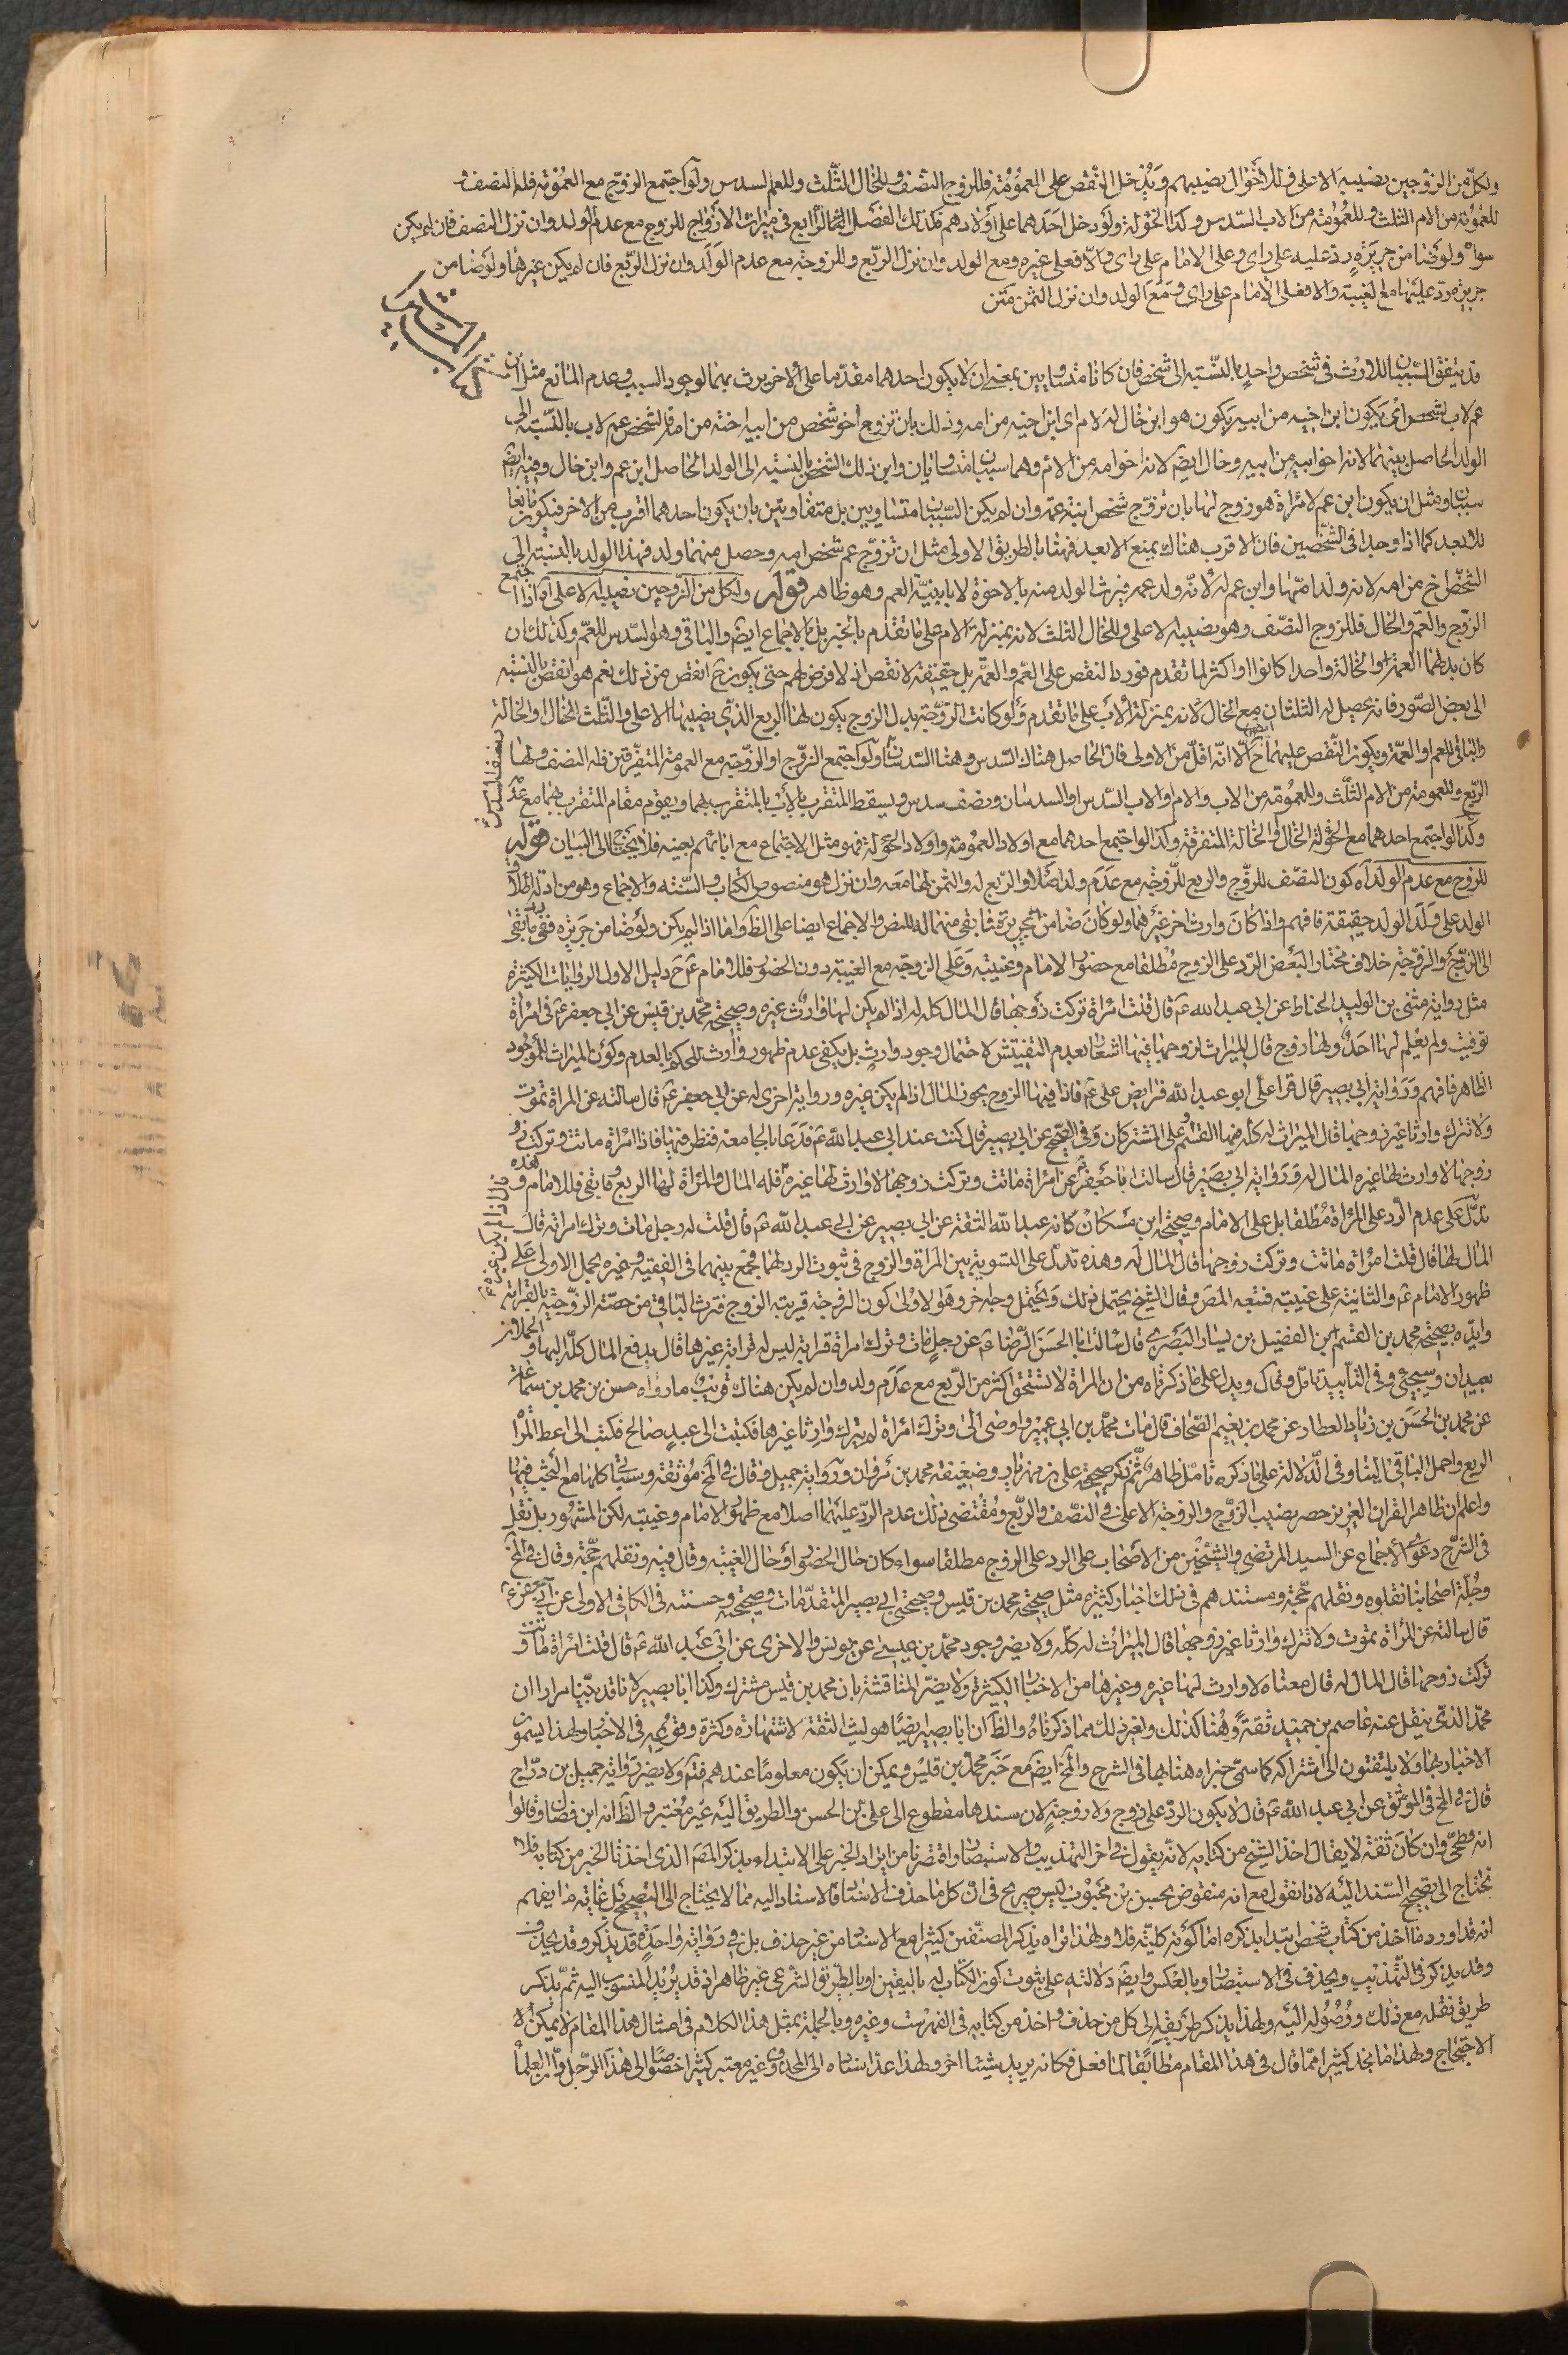 ولكل من الزوجين نصيبه الاعلى وللاخوال نصيبهم ويدخل النقص على العمومة فللزوج النصف وللخال الثلث وللعم السدس ولو اجتمع الزوج مع العمومة فله النصف و
للعمومة من الام الثلث وللعمومة من الاب السدس وكذا الخؤلة ولو دخل احدهما على اولادهم فكذلك الفصل الرابع في ميراث الازواج للزوج مع عدم الولد وان نزل النصف فان لم يكن
سواه ولو ضامن جريرة رد عليه على راى وعلى الامام على راى والا فعلى غيره ومع الولد وان نزل الربع وللزوجة مع عدم الولد وان نزل الربع فان لم يكن غيرها ولو ضامن
جريرة رد عليها مع الغيبة والا فعلى الامام على راى ومع الولد وان نزل الثمن متن
قد يتفق السببان للارث في شخص واحد بالنسبة الى شخص فان كانا متساويين بمعنى ان لا يكون احدهما مقدما على الاخر يرث بهما لوجود السبب وعدم المانع مثل ان
عم لاب لشخص اى يكون ابن اخيه من ابيه يكون هو ابن خال له لام اى ابن اخيه من امه وذلك بان تزوج اخو شخص من ابيه اخته من امه فالشخص عم لاب بالنسبة الى
الولد الحاصل بينهما لانه اخو ابيه من ابيه وخال ايضا لانه اخو امه من الام وهما سببان متساويان وابن ذلك الشخص بالنسبة الى الولد الحاصل ابن عم وابن خال وفيه ايضا
سببان ومثل ان يكون ابن عم لامراة هو زوج لها بان تزوج شخص ابنة عمه وان لم يكن السببان متساويين بل متفاوتين بان يكون احدهما اقرب من الاخر فيكون مانعا
للابعد كما اذا وجدا في الشخصين فان الاقرب هناك يمنع الابعد فهنا بالطريق الاولى مثل ان تزوج عم شخص امه وحصل منهما ولد فهذا الولد بالنسبة الى
الشخص اخ من امه لانه ولد امها وابن عم له لانه ولد عمه فيرث الولد منه بالاخوة لا بابنية العم وهو ظاهر قوله ولكل من الزوجين نصيبه الاعلى اه اذا اجتمع
الزوج والعم والخال فللزوج النصف وهو نصيبه الاعلى وللخال الثلث لانه بمنزلة الام على ما تقدم بالخبر بل بالاجماع ايضا والباقي وهو السدس للعم وكذلك ان
كان بدلهما العمة والخالة واحدا كانوا او اكثر لما تقدم فورد النقص على العم والعمة بل حقيقة لا نقص اذ لا فرض لهم حتى يكون ح انقص من ذلك نعم هو انقص بالنسبة
الى بعض الصور فانه يحصل له الثلثان مع الخال لانه بمنزلة الاب على ما تقدم ولو كانت الزوجة بدل الزوج يكون لها الربع الذي نصيبها الاعلى والثلث للخال او الخالة
والباقي للعم او العمة ويكون النقص عليهما ح الا انه اقل من الاولى فان الحاصل هناك السدس وهنا السدسان ونصف السدس ولو اجتمع الزوج او الزوجة مع العمومة المتفرقين فله النصف ولها
الربع وللعمومة من الام الثلث وللعمومة من الاب والام او الاب السدس او السدسان ونصف سدس ويسقط المتقرب بالاب بالمتقرب بهما ويقوم مقام المتقرب بهما مع عدمه
وكذا لو اجتمع احدهما مع الخؤلة الخال والخالة المتفرقة وكذا لو اجتمع احدهما مع اولاد العمومة واولاد الخؤلة فهو مثل الاجتماع مع ابائهم بعينه فلا يحتاج الى البيان قوله
للزوج مع عدم الولد اه كون النصف للزوج والربع للزوجة مع عدم ولد اصلا والربع له والثمن لها معه وان نزل هو منصوص الكتاب والسنة والاجماع وهو من ادلة اطلاق
الولد على ولد الولد حقيقة فافهم واذا كان وارث اخر غيرهما ولو كان ضامن جريرة فما بقى منهما له للنص والاجماع ايضا على الظ واما اذا لم يكن ولو ضامن جريرة ففى رد ما بقى
الى الزوج والزوجة خلاف مختار البعض الرد على الزوج مطلقا مع حضور الامام وغيبته وعلى الزوجة مع الغيبة دون الحضور فللامام ع ح دليل الاول الروايات الكثيرة
مثل رواية مثنى بن الوليد الحناط عن ابي عبد الله ع قال قلت امراة تركت زوجها قال المال كله له اذا لم يكن لها وارث غيره وصحيحة محمد بن قيس عن ابي جعفر ع في امراة
توفيت ولم يعلم لها احد ولها زوج قال الميراث لزوجها فيها اشعار بعدم التفتيش لاحتمال وجود وارث بل يكفى عدم ظهور وارث للحكم بالعدم وكون الميراث للموجود
الظاهر فافهم ورواية ابي بصير قال قرا على ابو عبد الله فرايض على ع فاذا فيها الزوج يحوز المال اذا لم يكن غيره ورواية اخرى له عن ابي جعفر ع قال سالته عن المراة تموت
ولا تترك وارثا غير زوجها قال الميراث له كله فيها القسم وعلى المشتركان وفي الصحيح عن ابي بصير قال كنت عند ابي عبد الله ع فدعا بالجامعة فنظر فيها فاذا امراة ماتت وتركت
زوجها لا وارث لها غيره المال له ورواية ابي بصير قال سالت ابا جعفر ع عن امراة ماتت وتركت زوجها لا وارث لها غيره قال اذا لم يكن غيره فله المال والمراة لها الربع وما بقى فللامام وهذه
تدل على عدم الرد على المراة مطلقا بل على الامام وصحيحة ابن مسكان كانه عبد الله الثقة عن ابي بصير عن ابي عبد الله ع قال قلت له رجل مات وترك امراته قال
المال لها قال قلت امراة ماتت وتركت زوجها قال المال له وهذه تدل على التسوية بين المراة والزوج في ثبوت الرد لهما فجمع بينهما في الفقيه وغيره بحمل الاولى على
ظهور الامام ع والثانية على غيبته فتبعه المص وقال الشيخ يحتمل ذلك ويحتمل وجه اخر وهو الاولى كون الزوجة قريبة الزوج فترث الباقي من حصة الزوجية بالقرابة
وايده بصحيحة محمد بن القسم بن الفضيل بن يسار البصرى قال سالت ابا الحسن الرضا ع عن رجل مات وترك امراة قرابة ليس له قرابة غيرها قال يدفع المال كله اليها والحملان
بعيدان وسيجئ وفي التاييد تامل وقال ويدل على ما ذكرناه من ان المراة لا تستحق اكثر من الربع مع عدم ولد وان لم يكن هناك قريب ما رواه حسن بن محمد بن سماعة
عن محمد بن الحسن بن زياد العطار عن محمد بن نعيم الصحاف قال مات محمد بن ابي عمير واوصى الى وترك امراة لم يترك وارثا غيرها فكتبت الى عبد صالح فكتب الى اعط المراة
الربع واحمل الباقي الينا وفي الدلالة على ما ذكره تامل ظاهر ثم ذكر صحيحة على بن مهزيار وضعيفة محمد بن مروان ورواية جميل قال في المخ موثقة وستاتي كلها مع البحث فيها
واعلم ان ظاهر القران العزيز حصر نصيب الزوج والزوجة الاعلى في النصف والربع ومقتضى ذلك عدم الرد عليهما اصلا مع ظهور الامام وغيبته لكن المشهور بل نقل
في الشرح دعوى الاجماع عن السيد المرتضى والشيخين من الاصحاب على الرد على الزوج مطلقا سواء كان حال الحضور او حال الغيبة وقال فيه ونقلهم حجة وقال في المخ
وجلة اصحابنا نقلوه ونقلهم حجة ومستندهم في ذلك اخبار كثيرة مثل صحيحة محمد بن قيس وصحيحتى ابي بصير المتقدمات وصحيحته وحسنته في الكافي الاولى عن ابي جعفر ع
قال سالته عن المراة تموت ولا تترك وارثا غير زوجها قال الميراث له كله ولا يضر وجود محمد بن عيسى عن يونس والاخرى عن ابي عبد الله ع قال قلت امراة ماتت و
تركت زوجها قال المال له قال معناه لا وارث لها غيره وغيرها من الاخبار الكثيرة ولا يضر المناقشة بان محمد بن قيس مشترك وكذا ابا بصير لانا قد بينا مرارا ان
محمد الذي ينقل عنه عاصم بن حميد ثقة وهنا كذلك ولغير ذلك مما ذكرناه والظ ان ابا بصير ايضا هو ليث الثقة لاشتهاره وكثرة وقوعه في الاخبار ولهذا يسمون
الاخبار بها ولا يلتفتون الى اشتراكه كما سمى خبراه هنا بها في الشرح والمخ ايضا مع خبر محمد بن قيس ويمكن ان يكون معلوما عندهم فتم ولا يضر رواية جميل بن دراج
قال في المخ في الموثق عن ابي عبد الله ع قال لا يكون الرد على زوج ولا زوجة لان سندها مقطوع الى على بن الحسن والطريق اليه غير معتبر والظ انه ابن فضال وقالوا
انه فطحى وان كان ثقة لا يقال اخذ الشيخ من كتابه لانه يقول في اخر التهذيب والاستبصار واقتصرنا من ايراد الخبر على الابتداء بذكر المص الذي اخذنا الخبر من كتابه فلا
نحتاج الى تصحيح السند اليه لانا نقول مع انه منقوض بحسين بن محبوب ليس صريح في ان كل ما حذف الاسناد فالاسناد اليه مما لا يحتاج الى التصحيح بل غايته ما يفهم
انه قد اورد وما اخذ من كتاب شخص ابتدا بذكره اما كونه كلية فلا ولهذا تراه يذكر المصنفين كثيرا مع الاسناد من غير حذف بل في رواية واحدة قد يذكر وقد يحذف
وقد يذكر في التهذيب ويحذف في الاستبصار وبالعكس وايضا دلالته على ثبوت كون الكتاب له باليقين او بالطريق الشرعى غير ظاهر اذ قد يريد المنسوب اليه ثم يذكر
طريق نقله مع ذلك ووصوله اليه ولهذا يذكر طريقه الى كل من حذف واخذ من كتابه في الفهرست وغيره وبالجملة بمثل هذا الكلام في امثال هذا المقام لا يمكن
الاحتجاج ولهذا ما نجد كثيرا مما قال في هذا المقام مطابقا لما فعل فكانه يريد شيئا اخر ولهذا عد اسناده الى المحدوق وغير معتبر كثيرا خصوصا الى هذا الرجل